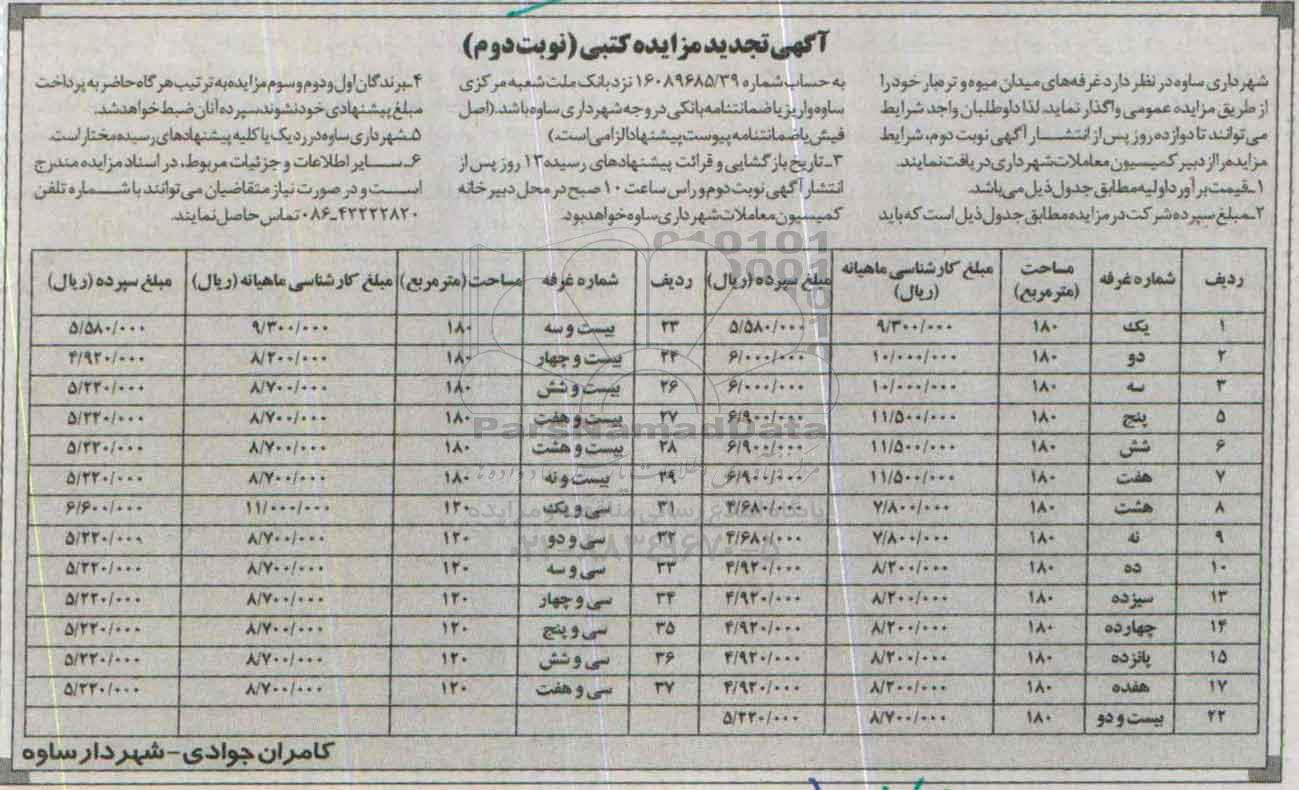 آگهی تجدید مزایده کتبی (نوبت دوم)
شهرداری ساوه در نظر دارد غرفه‌های میدان میوه و تره‌بار خود را
از طریق مزایده عمومی واگذار نماید. لذا داوطلبان واجد شرایط
می‌توانند تا دوازده روز پس از انتشار آگهی نوبت دوم، شرایط
مزایده را از دبیر کمیسیون معاملات شهرداری دریافت نمایند.
۱ـ قیمت برآورد اولیه مطابق جدول ذیل می‌باشد.
۲ـ مبلغ سپرده شرکت در مزایده مطابق جدول ذیل است که باید
به حساب شماره ۱۶۰۸۹۶۸۵/۳۹ نزد بانک ملت شعبه مرکزی
ساوه واریز یا ضمانتنامه بانکی در وجه شهرداری ساوه باشد. (اصل
فیش یا ضمانتنامه پیوست پیشنهاد الزامی است.)
۳ـ تاریخ بازگشایی و قرائت پیشنهادهای رسیده ۱۳ روز پس از
انتشار آگهی نوبت دوم و راس ساعت ۱۰ صبح در محل دبیرخانه
کمیسیون معاملات شهرداری ساوه خواهد بود.
۴ـ برندگان اول و دوم و سوم مزایده به ترتیب هرگاه حاضر به پرداخت
مبلغ پیشنهادی خود نشوند سپرده آنان ضبط خواهد شد.
۵ـ شهرداری ساوه در رد یک یا کلیه پیشنهادهای رسیده مختار است.
۶ـ سایر اطلاعات و جزئیات مربوط، در اسناد مزایده مندرج
است و در صورت نیاز متقاضیان می‌توانند با شماره تلفن
۴۲۲۲۲۸۲۰ـ۰۸۶ تماس حاصل نمایند.
ردیف شماره غرفه مساحت (مترمربع) مبلغ کارشناسی ماهیانه (ریال) مبلغ سپرده (ریال) ردیف شماره غرفه مساحت (مترمربع) مبلغ کارشناسی ماهیانه (ریال) مبلغ سپرده (ریال)
۱ یک ۱۸۰ ۹/۳۰۰/۰۰۰ ۵/۵۸۰/۰۰۰ ۲۳ بیست و سه ۱۸۰ ۹/۳۰۰/۰۰۰ ۵/۵۸۰/۰۰۰
۲ دو ۱۸۰ ۱۰/۰۰۰/۰۰۰ ۶/۰۰۰/۰۰۰ ۲۴ بیست و چهار ۱۸۰ ۸/۲۰۰/۰۰۰ ۴/۹۲۰/۰۰۰
۳ سه ۱۸۰ ۱۰/۰۰۰/۰۰۰ ۶/۰۰۰/۰۰۰ ۲۶ بیست و شش ۱۸۰ ۸/۷۰۰/۰۰۰ ۵/۲۲۰/۰۰۰
۵ پنج ۱۸۰ ۱۱/۵۰۰/۰۰۰ ۶/۹۰۰/۰۰۰ ۲۷ بیست و هفت ۱۸۰ ۸/۷۰۰/۰۰۰ ۵/۲۲۰/۰۰۰
۶ شش ۱۸۰ ۱۱/۵۰۰/۰۰۰ ۶/۹۰۰/۰۰۰ ۲۸ بیست و هشت ۱۸۰ ۸/۷۰۰/۰۰۰ ۵/۲۲۰/۰۰۰
۷ هفت ۱۸۰ ۱۱/۵۰۰/۰۰۰ ۶/۹۰۰/۰۰۰ ۲۹ بیست و نه ۱۸۰ ۸/۷۰۰/۰۰۰ ۵/۲۲۰/۰۰۰
۸ هشت ۱۸۰ ۷/۸۰۰/۰۰۰ ۴/۶۸۰/۰۰۰ ۳۱ سی و یک ۱۲۰ ۱۱/۰۰۰/۰۰۰ ۶/۶۰۰/۰۰۰
۹ نه ۱۸۰ ۷/۸۰۰/۰۰۰ ۴/۶۸۰/۰۰۰ ۳۲ سی و دو ۱۲۰ ۸/۷۰۰/۰۰۰ ۵/۲۲۰/۰۰۰
۱۰ ده ۱۸۰ ۸/۲۰۰/۰۰۰ ۴/۹۲۰/۰۰۰ ۳۳ سی و سه ۱۲۰ ۸/۷۰۰/۰۰۰ ۵/۲۲۰/۰۰۰
۱۳ سیزده ۱۸۰ ۸/۲۰۰/۰۰۰ ۴/۹۲۰/۰۰۰ ۳۴ سی و چهار ۱۲۰ ۸/۷۰۰/۰۰۰ ۵/۲۲۰/۰۰۰
۱۴ چهارده ۱۸۰ ۸/۲۰۰/۰۰۰ ۴/۹۲۰/۰۰۰ ۳۵ سی و پنج ۱۲۰ ۸/۷۰۰/۰۰۰ ۵/۲۲۰/۰۰۰
۱۵ پانزده ۱۸۰ ۸/۲۰۰/۰۰۰ ۴/۹۲۰/۰۰۰ ۳۶ سی و شش ۱۲۰ ۸/۷۰۰/۰۰۰ ۵/۲۲۰/۰۰۰
۱۷ هفده ۱۸۰ ۸/۲۰۰/۰۰۰ ۴/۹۲۰/۰۰۰ ۳۷ سی و هفت ۱۲۰ ۸/۷۰۰/۰۰۰ ۵/۲۲۰/۰۰۰
۲۲ بیست و دو ۱۸۰ ۸/۷۰۰/۰۰۰ ۵/۲۲۰/۰۰۰
کامران جوادی - شهردار ساوه
ParsNamadData